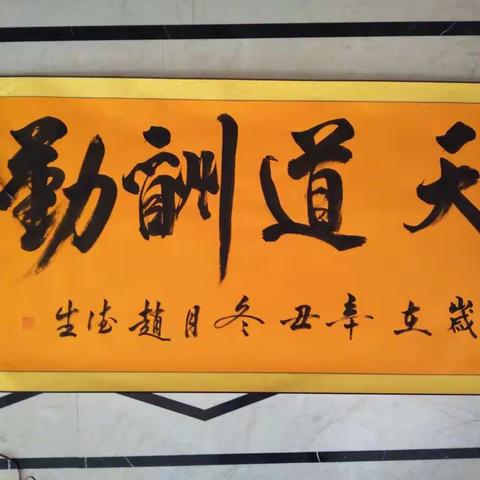 天道酬勤
歲在辛丑冬月趙德生